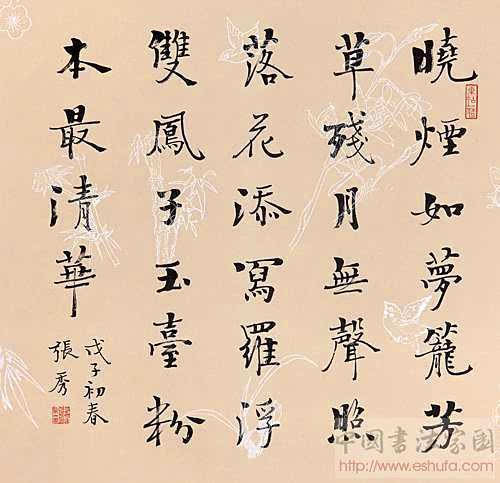 曉煙如夢籠芳
草殘月無聲照
落花添寫羅浮
雙鳳子玉臺粉
本最清華
戊子初春
張秀
中国书法家园
http://www.eshufa.com